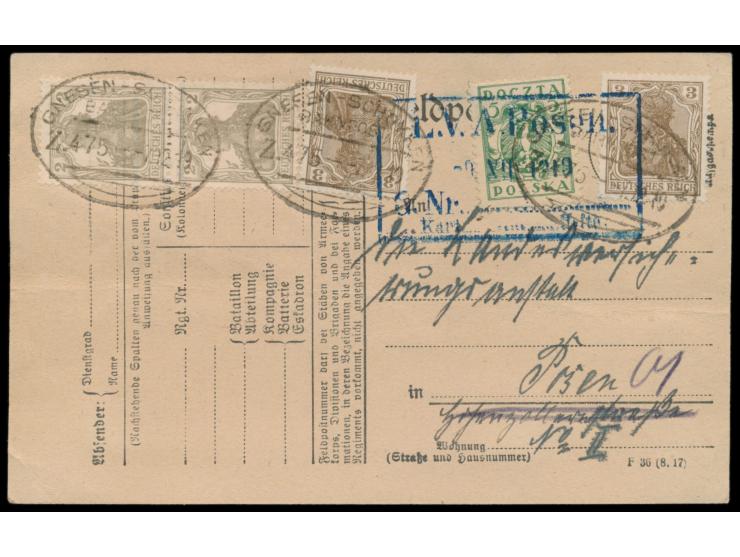 Feldpost
GNESEN-SCHOKKEN
Z. 475
2
DEUTSCHES REICH
2
DEUTSCHES REICH
GNESEN-SCHOKKEN
Z. 475
3
DEUTSCHES REICH
POCZTA
5 5
POLSKA
3
DEUTSCHES REICH
L.V.A Posen.
XII. 1919
Nr.
An
Die Landesversiche-
rungsanstalt
in Posen O1
Hohenzollernstraße
No II
Wohnung
(Straße und Hausnummer)
F 36 (8. 17)
Absender:
Dienstgrad
Name
(Nachstehende Spalten genau nach der vom
Anweisung ausfüllen.)
(Kolonne)
Rgt. Nr.
Bataillon
Abteilung
Kompagnie
Batterie
Eskadron
Feldpostnummer darf bei Stäben von Armee-
korps, Divisionen und Brigaden und bei For-
mationen, in deren Bezeichnung die Angabe eines
Regiments vorkommt, nicht angegeben werden.